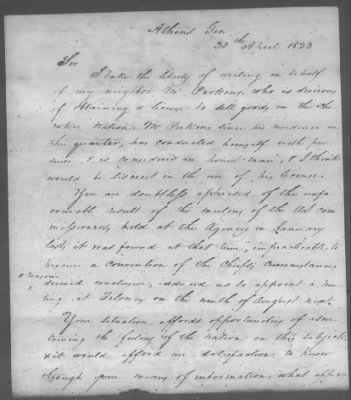 Athens Geo
30th April 1823
Sir
I take the liberty of writing in behalf
of my neighbor Mr. Perkins, who is desirous
of Obtaining a license to sell goods in the Che
rokee Nation. Mr Perkins since his residence in
this quarter, has conducted himself with pru
dence, & is considered an honest man, & I think
would be discreet in the use of his license.
You are doubtless apprised, of the unfa
vourable result of the meeting of the
commissioners, held at the Agency in January
last, it was found at that time, impracticable, to
procure a convention of the Chiefs, circumstances
& reasons
deemed conclusive, induced us to appoint a mee
ting, at on the month of August next.
Your situation, affords opportunities of ascer
taining the feeling of the nation on this subject,
& it would afford me satisfaction, to know
through your means of information, what appear